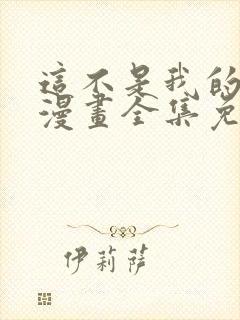 這不是我的
漫畫全集免
伊莉萨